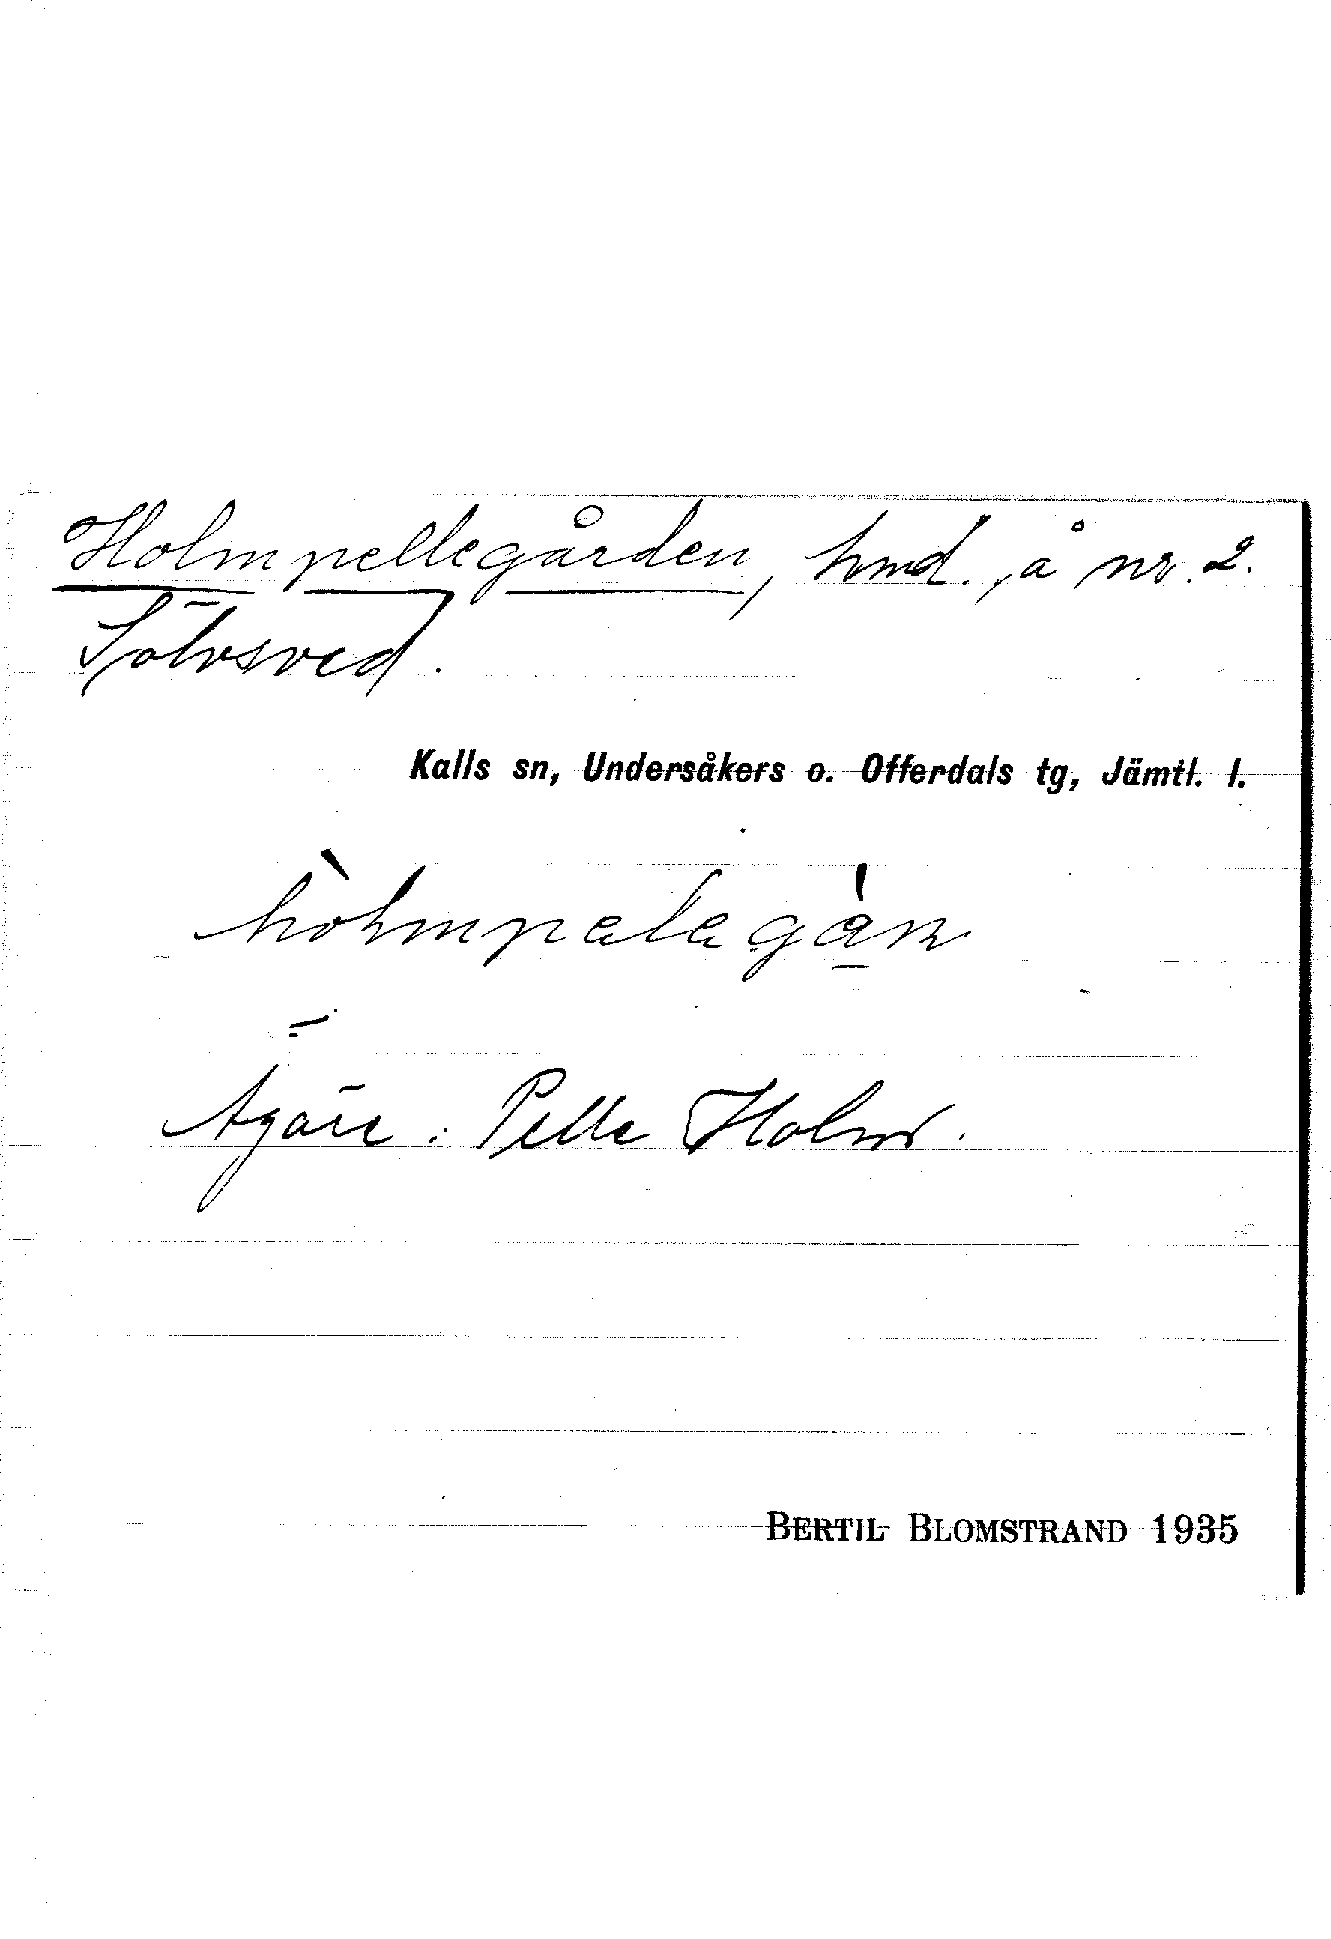 Holmpellegården, hmd., å nr. 2.
Sölvsved.
Kalls sn, Undersåkers o. Offerdals tg, Jämtl. l.
Ägare: Pelle Holm.
BERTIL BLOMSTRAND 1935